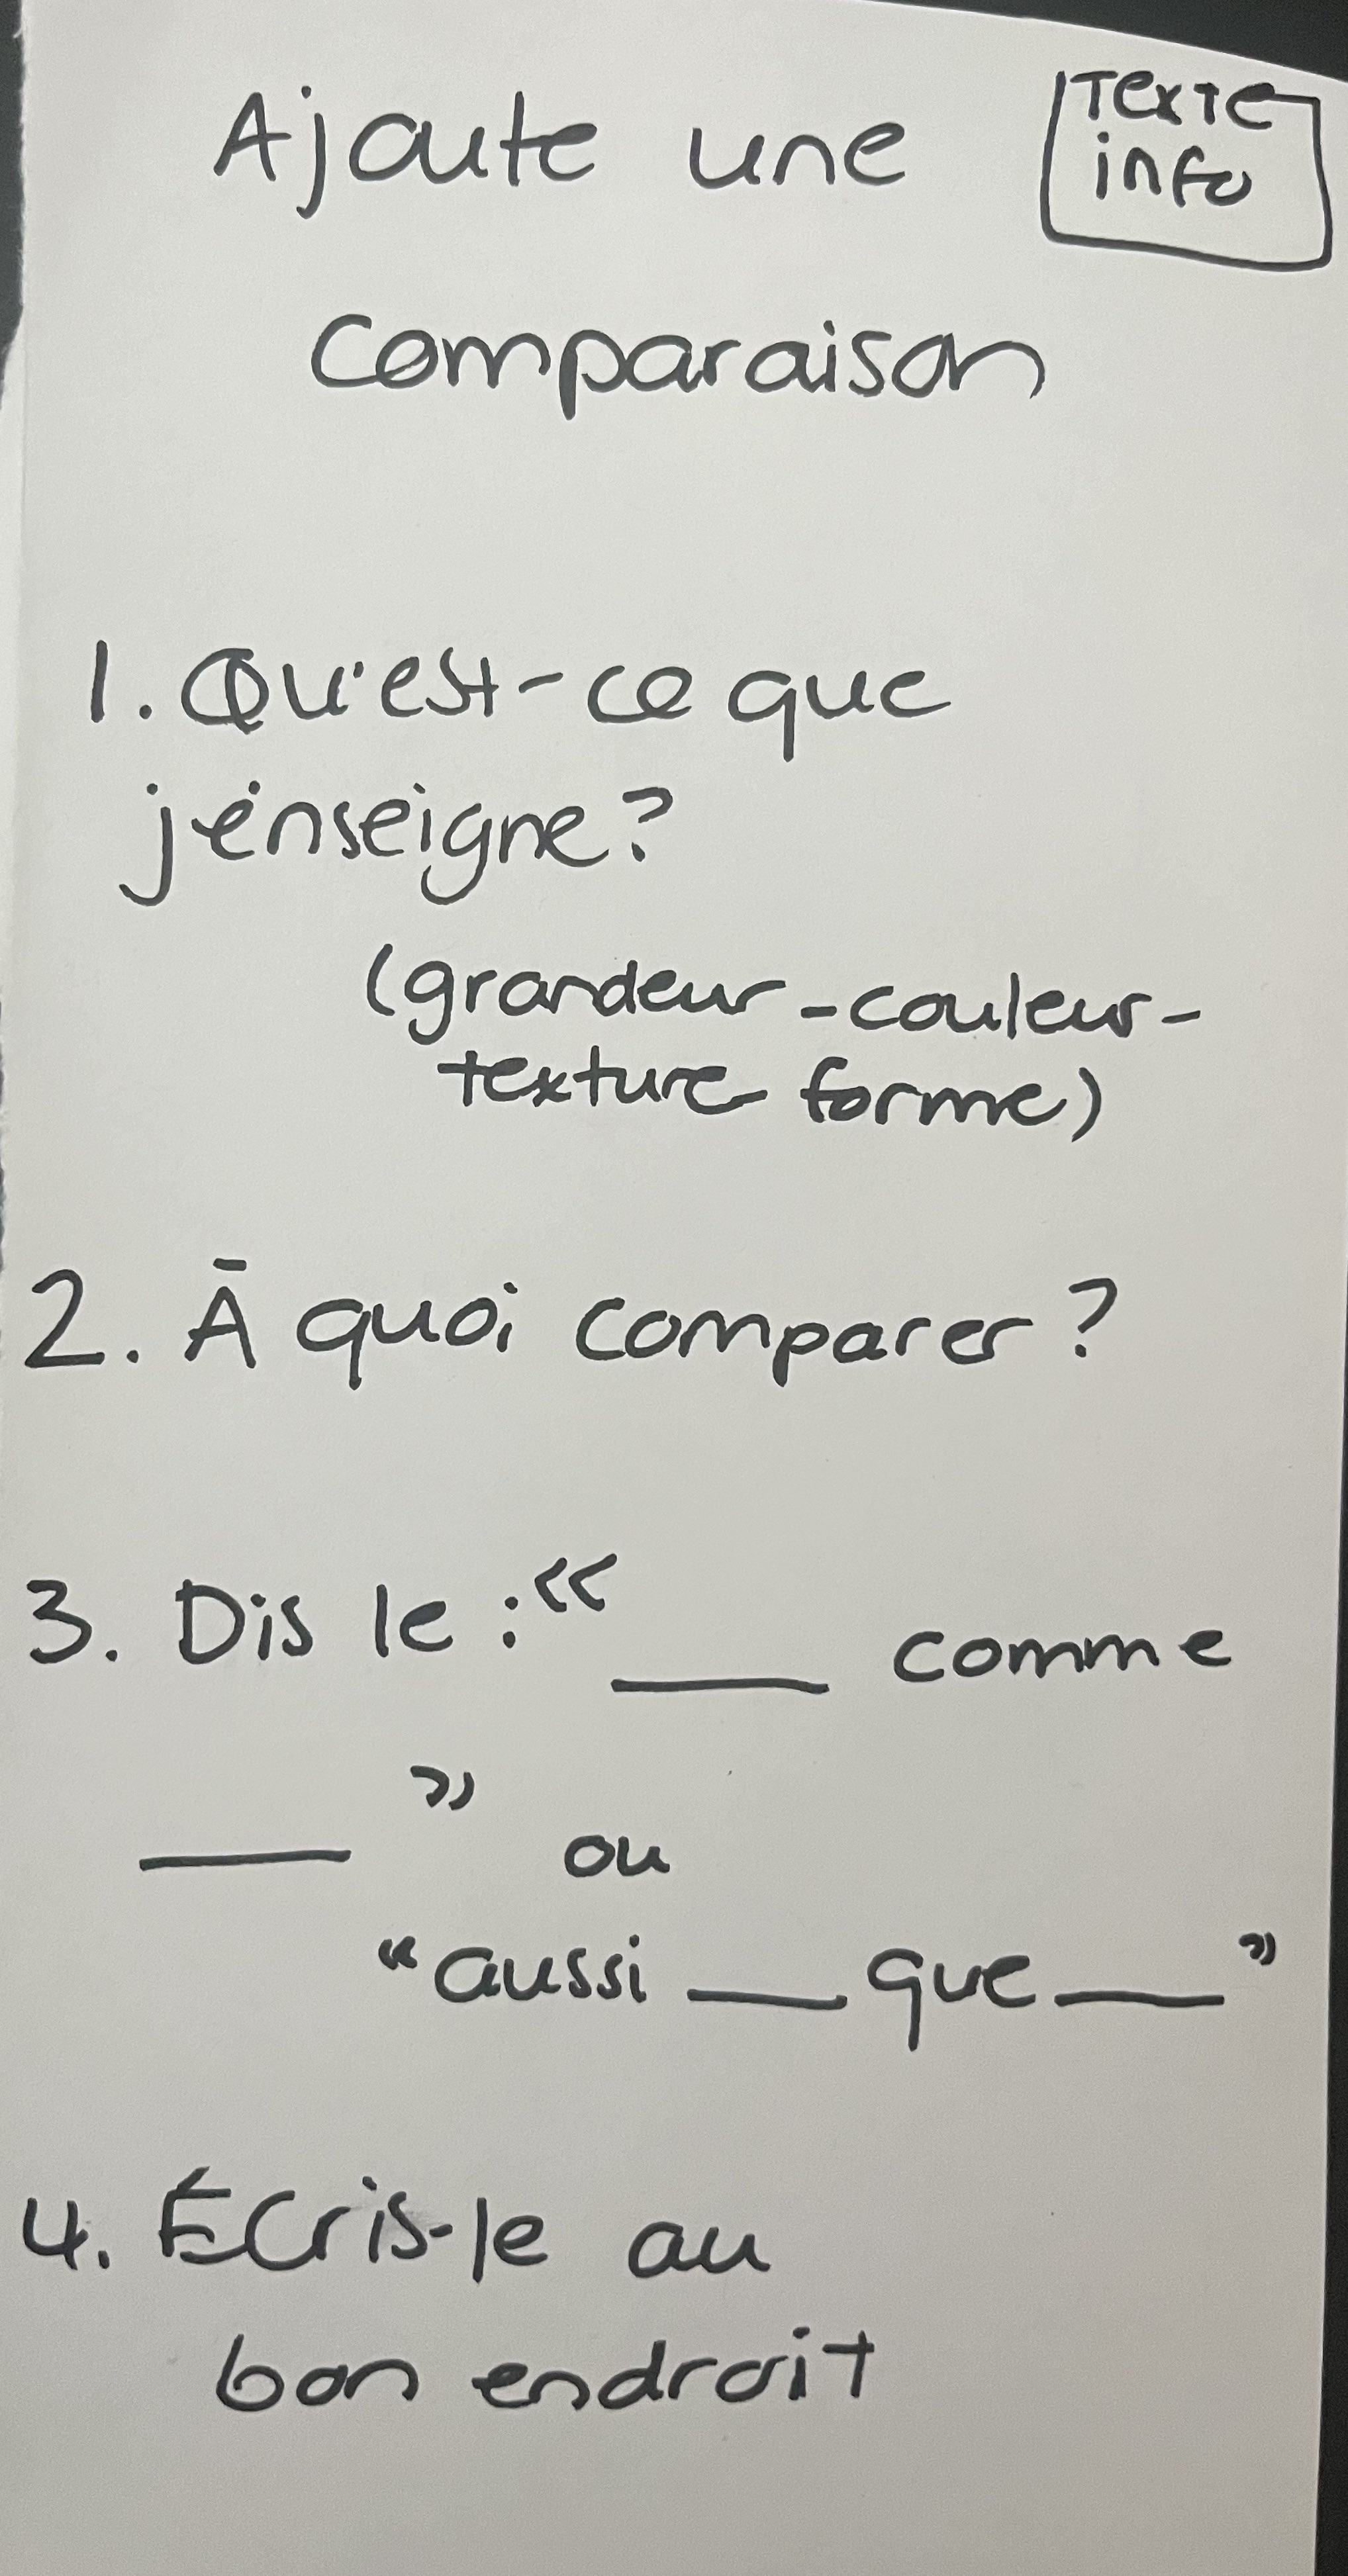 Ajoute une
Texte
info
Comparaison
1. Qu'est-ce que
j'enseigne?
(grandeur - couleur -
texture - forme)
2. À quoi comparer ?
3. Dis le : « ___ comme
___ » ou
“aussi ___ que ___”
4. Écris-le au
bon endroit